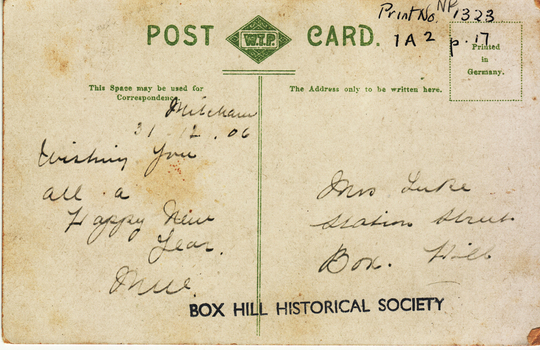 Print No. NP 1323
1A2 p.17
POST CARD.
W.T.P.
Printed
in
Germany.
This Space may be used for
Correspondence.
The Address only to be written here.
Mitcham
31 . 2 . 06
Wishing you
all a
Happy New
Year.
Mrs Luke
Station Street
Box Hill
BOX HILL HISTORICAL SOCIETY